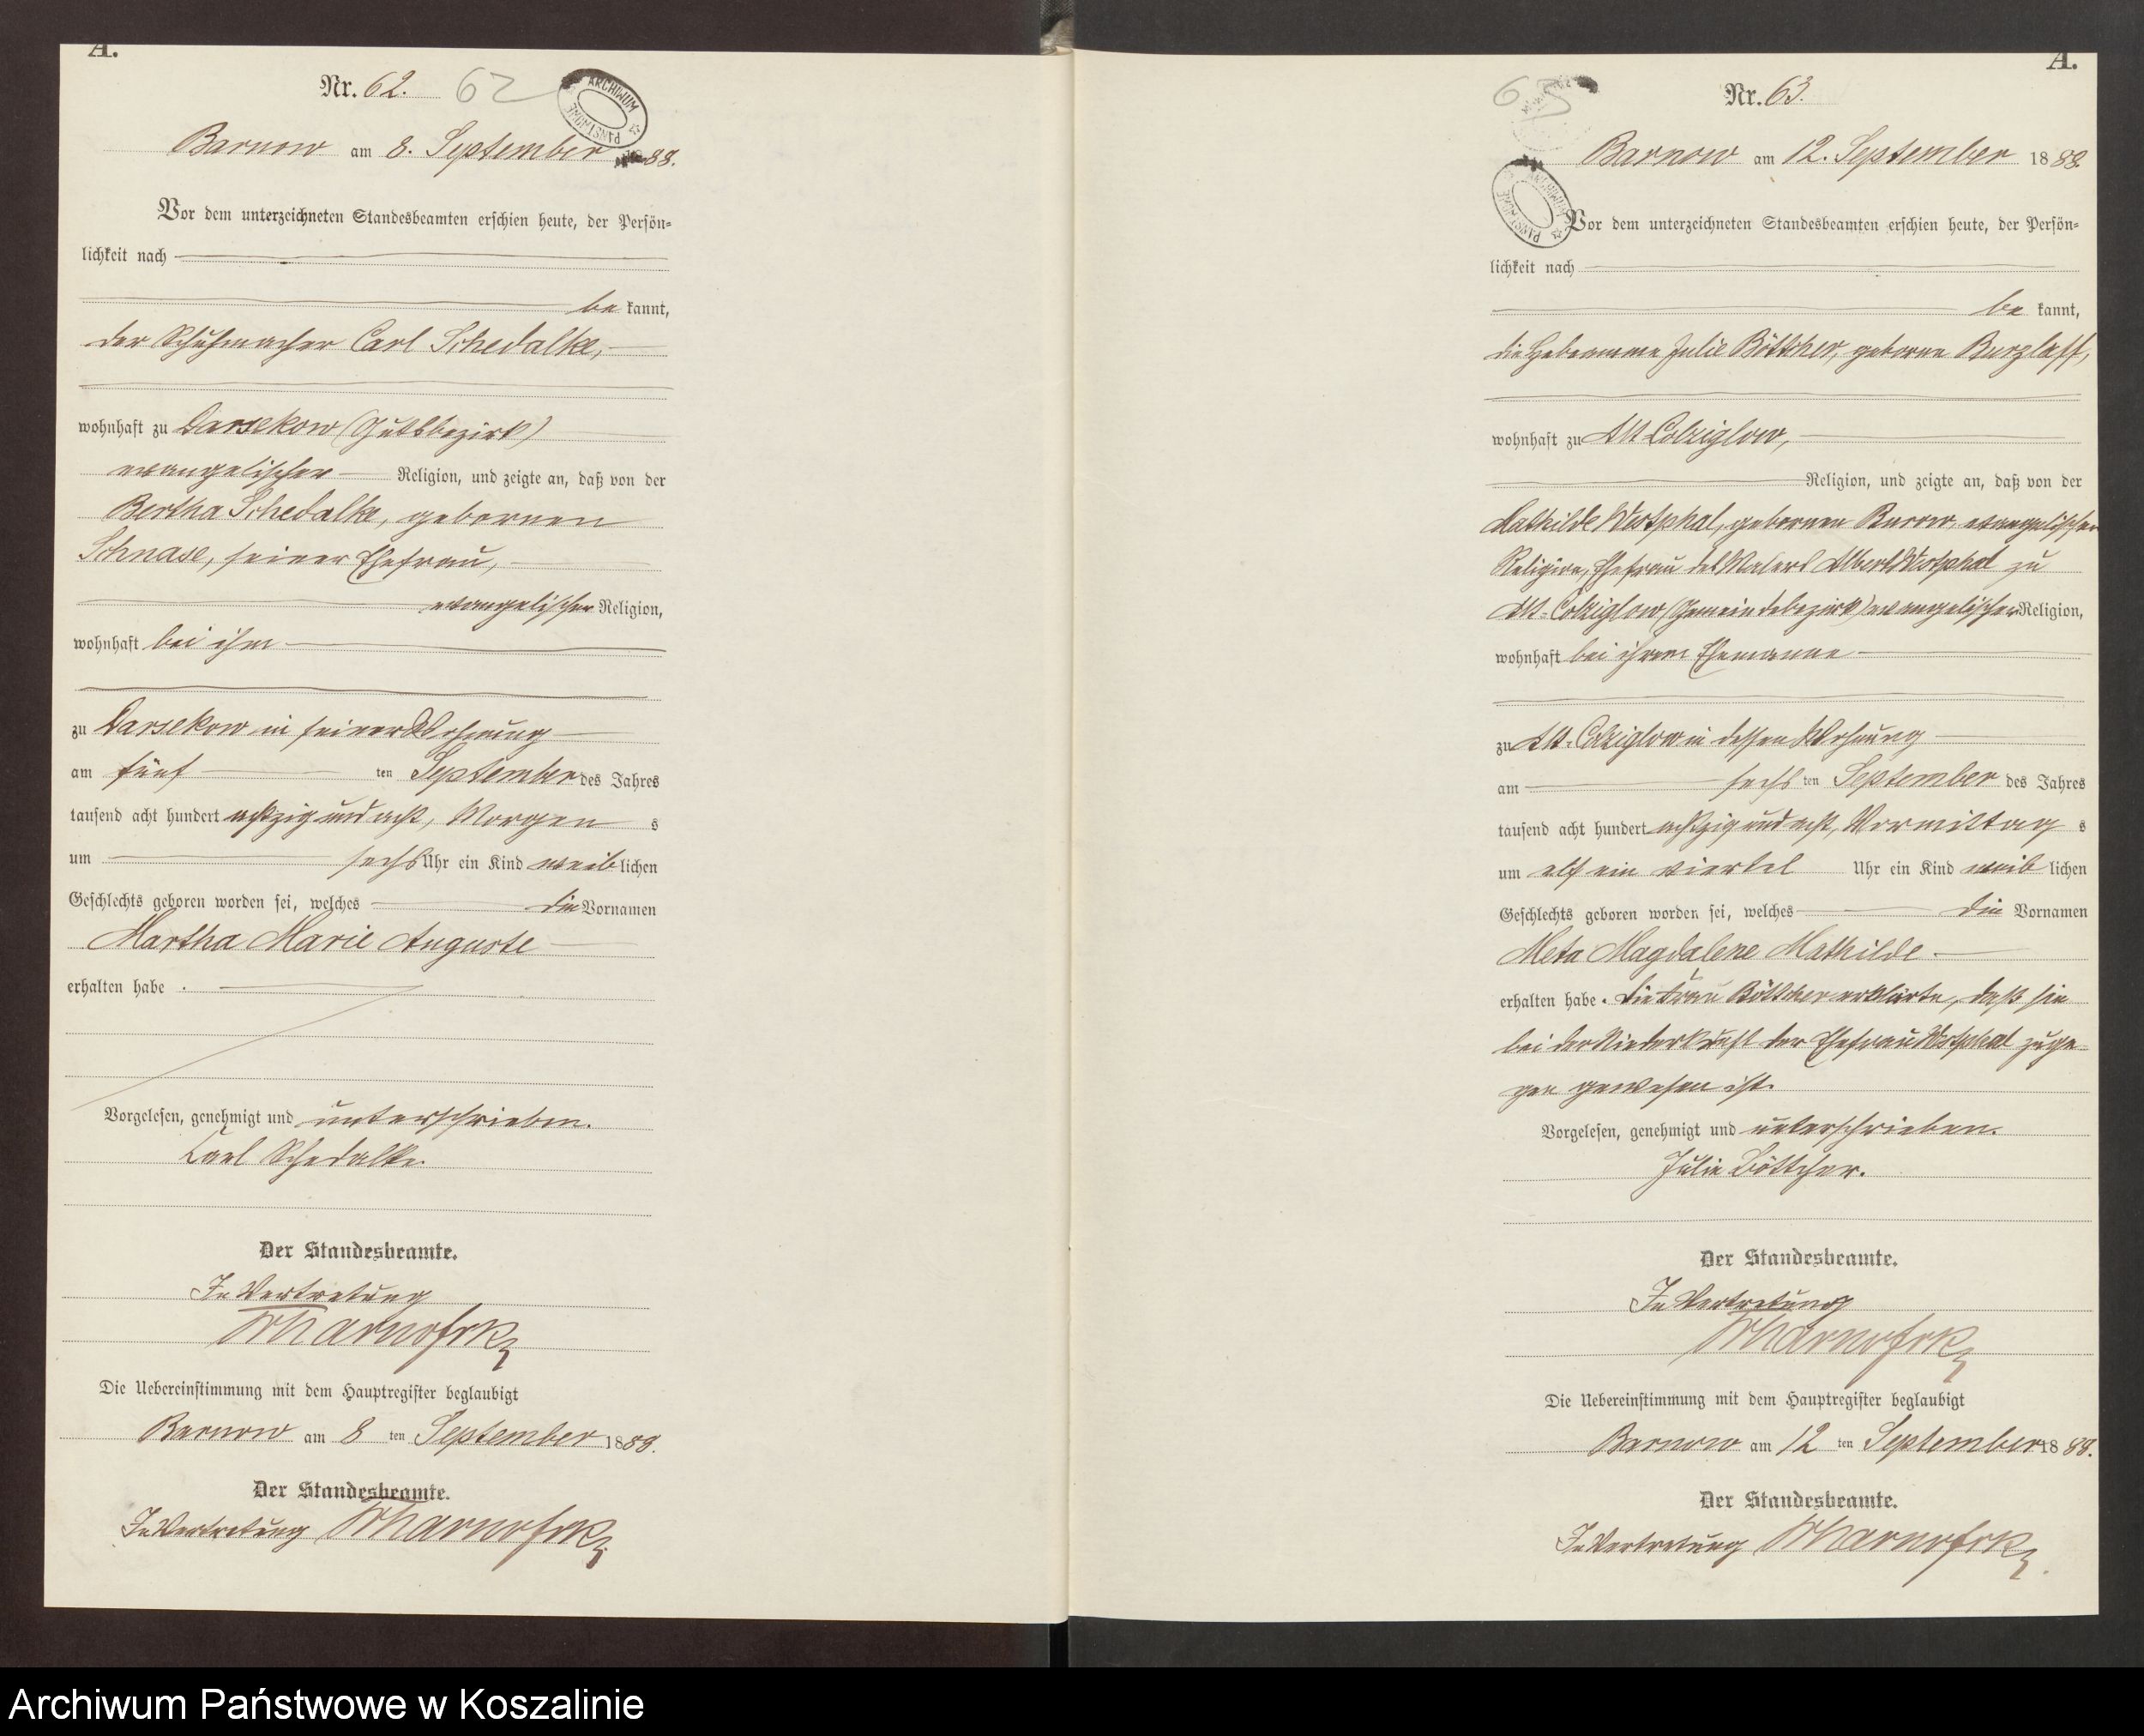 A.
Nr. 62. 62
ARCHIWUM PAŃSTWOWE
Barnow am 8. September 1888.
Vor dem unterzeichneten Standesbeamten erschien heute, der Persön-
lichkeit nach
be kannt,
der Schuhmacher Carl Schedalke,
wohnhaft zu Darsekow (Gutsbezirk)
evangelischer Religion, und zeigte an, daß von der
Bertha Schedalke, gebornen
Schnase, seiner Ehefrau,
evangelischer Religion,
wohnhaft bei ihm
zu Darsekow in seiner Wohnung
am fünf ten September des Jahres
tausend acht hundert achtzig und acht, Morgen s
um sechs Uhr ein Kind weib lichen
Geschlechts geboren worden sei, welches die Vornamen
Martha Marie Auguste
erhalten habe .
Vorgelesen, genehmigt und unterschrieben.
Carl Schedalke.
Der Standesbeamte.
In Vertretung
Die Uebereinstimmung mit dem Hauptregister beglaubigt
Barnow am 8 ten September 1888.
Der Standesbeamte.
In Vertretung
A.
63 Nr. 63.
Barnow am 12. September 1888
ARCHIWUM PAŃSTWOWE
Vor dem unterzeichneten Standesbeamten erschien heute, der Persön-
lichkeit nach
be kannt,
die Hebeamme Julie Böttcher, geborne Burzlaff,
wohnhaft zu Alt Colziglow,
Religion, und zeigte an, daß von der
Mathilde Westphal, gebornen evangelischer
Religion, Ehefrau des Malers Albert Westphal zu
Alt-Colziglow (Gemeindebezirk) evangelischer Religion,
wohnhaft bei ihrem Ehemanne
zu Alt-Colziglow in dessen Wohnung
am sechs ten September des Jahres
tausend acht hundert achtzig und acht, Vormittag s
um elf ein viertel Uhr ein Kind weib lichen
Geschlechts geboren worden sei, welches die Vornamen
Meta Magdalene Mathilde
erhalten habe. Die Frau Böttcher erklärte, daß sie
bei der Niederkunft der Ehefrau Westphal zuge-
gen gewesen ist.
Vorgelesen, genehmigt und unterschrieben.
Julie Böttcher.
Der Standesbeamte.
In Vertretung
Die Uebereinstimmung mit dem Hauptregister beglaubigt
Barnow am 12 ten September 1888.
Der Standesbeamte.
In Vertretung
Archiwum Państwowe w Koszalinie